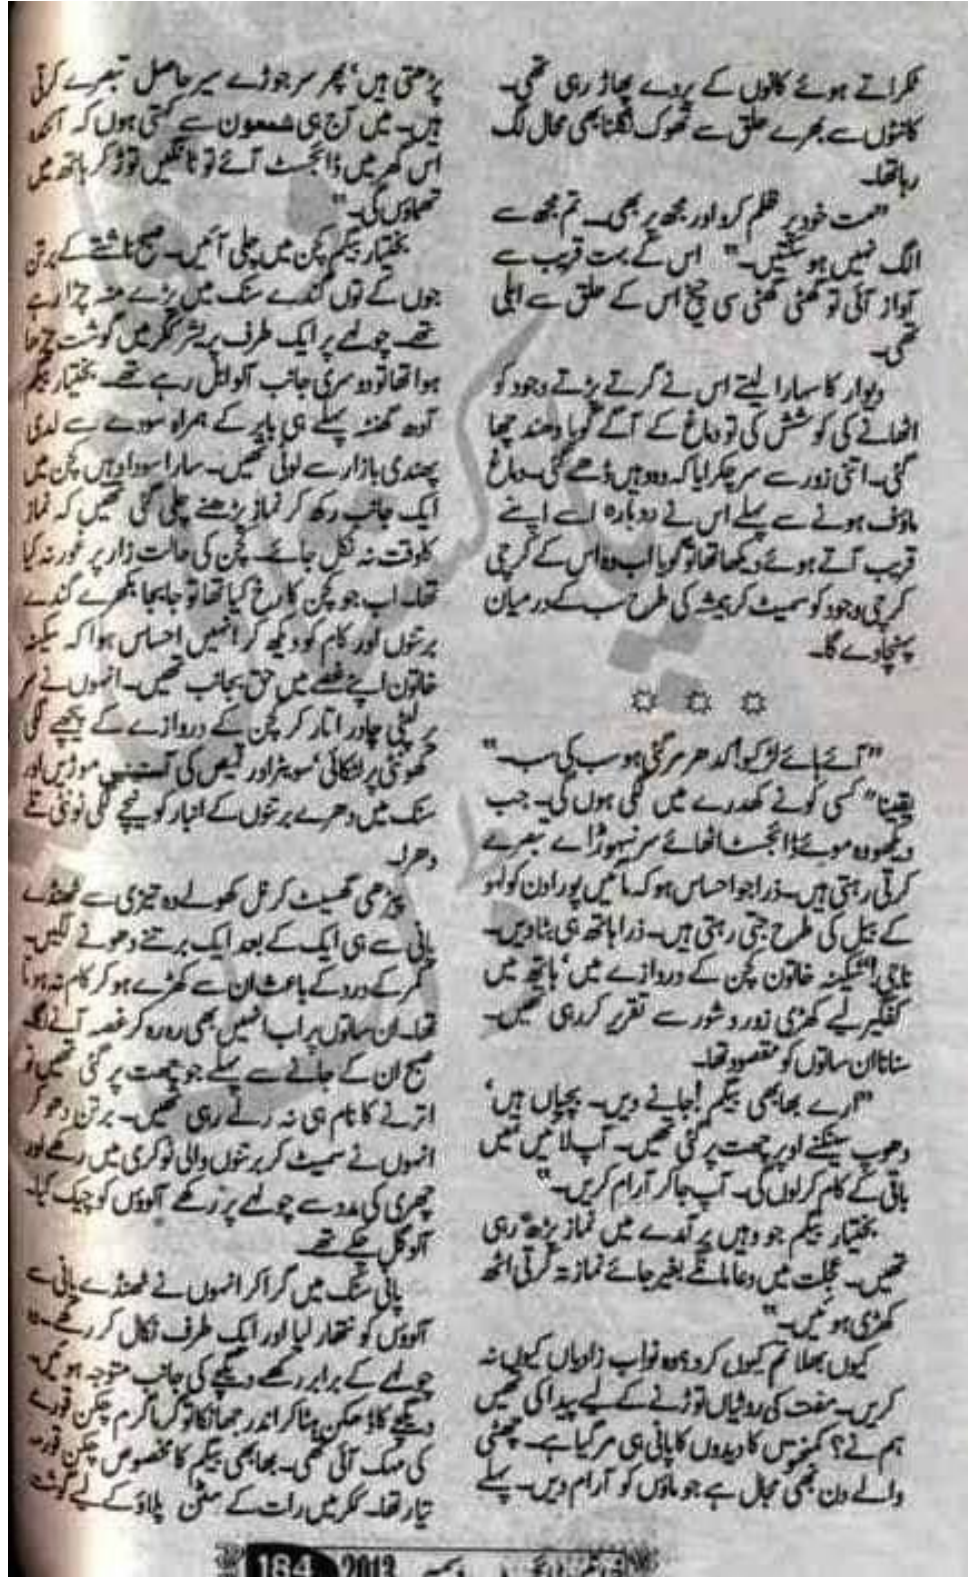 ٹکراتے ہوئے کانوں کے پردے پھاڑ رہی تھی۔
کانٹوں سے بھرے حلق سے تھوک نگلنا بھی محال لگ
رہا تھا۔
"مت خود پر ظلم کرو اور مجھ پر بھی۔ تم مجھ سے
الگ نہیں ہو سکتیں۔" اس کے بہت قریب سے
آواز آئی تو گھٹی گھٹی سی چیخ اس کے حلق سے ابلی
تھی۔
دیوار کا سہارا لیتے اس نے گرتے پڑتے وجود کو
اٹھانے کی کوشش کی تو دماغ کے آگے گویا دھند چھا
گئی۔ اتنی زور سے سر چکرایا کہ وہ وہیں ڈھے گئی۔ دماغ
ماؤف ہونے سے پہلے اس نے دوبارہ اسے اپنے
قریب آتے ہوئے دیکھا تھا تو گویا اب وہ اس کے کرچی
کرچی وجود کو سمیٹ کر ہمیشہ کی طرح سب کے درمیان
پہنچا دے گا۔
"آئے ہائے لڑکیو! کدھر مر گئی ہو سب کی سب۔"
یقیناً" کسی کونے کھدرے میں لگی ہوں گی۔ جب
دیکھو وہ موئے ڈائجسٹ اٹھائے سر نیہوڑائے تبصرے
کرتی رہتی ہیں۔ ذرا جو احساس ہو کہ مائیں پورا دن کولہو
کے بیل کی طرح جتی رہتی ہیں۔ ذرا ہاتھ ہی بٹا دیں۔
ناجی!" سکینہ خاتون کچن کے دروازے میں، ہاتھ میں
کفگیر لیے کھڑی زور و شور سے تقریر کر رہی تھیں۔
سنانا ان ساتوں کو مقصود تھا۔
"ارے بھابھی بیگم! جانے دیں۔ بچیاں ہیں،
دھوپ سینکنے اوپر چھت پر گئی تھیں۔ آپ لائیں میں
باقی کے کام کر لوں گی۔ آپ جا کر آرام کریں۔"
بختیار بیگم جو وہیں برآمدے میں نماز پڑھ رہی
تھیں۔ عجلت میں دعا مانگے بغیر جائے نماز تہ کرتی اٹھ
کھڑی ہوئیں۔"
کیوں بھلا تم کیوں کرو؟ وہ نواب زادیاں کیوں نہ
کریں۔ مفت کی روٹیاں توڑنے کے لیے پیدا کی تھیں
ہم نے؟ کمبختوں کا دیدوں کا پانی ہی مر گیا ہے۔ چھٹی
والے دن بھی مجال ہے جو ماؤں کو آرام دیں۔ پہلے
پڑھتی ہیں، پھر سر جوڑے سیر حاصل تبصرے کرتی
ہیں۔ میں آج ہی شمعون سے کہتی ہوں کہ آئندہ
اس گھر میں ڈائجسٹ آئے تو ٹانگیں توڑ کر ہاتھ میں
تھماؤں گی۔"
بختیار بیگم کچن میں چلی آئیں۔ صبح ناشتے کے برتن
جوں کے توں گندے سنک میں پڑے منہ چڑا رہے
تھے۔ چولہے پر ایک طرف پریشر ککر میں گوشت چڑھا
ہوا تھا تو دوسری جانب آلو ابل رہے تھے۔ بختیار بیگم
آدھ گھنٹہ پہلے ہی بابر کے ہمراہ سودے سے لدی
پھندی بازار سے لوٹی تھیں۔ سارا سودا وہیں کچن میں
ایک جانب رکھ کر نماز پڑھنے چلی گئی تھیں کہ نماز
کا وقت نہ نکل جائے۔ کچن کی حالت زار پر غور نہ کیا
تھا۔ اب جو کچن کا رخ کیا تھا تو جابجا بکھرے گندے
برتنوں اور کام کو دیکھ کر انہیں احساس ہوا کہ سکینہ
خاتون اپنے غصے میں حق بجانب تھیں۔ انہوں نے سر
پر لپٹی چادر اتار کر کچن کے دروازے کے پیچھے لگی
کھونٹی پر لٹکائی، سویٹر اور قمیص کی آستینیں موڑیں اور
سنک میں دھرے برتنوں کے انبار کو نیچے لگی ٹونٹی تلے
دھرا۔
پیڑھی گھسیٹ کر نل کھولے وہ تیزی سے ٹھنڈے
پانی سے ہی ایک کے بعد ایک برتن دھونے لگیں۔
کمر کے درد کے باعث ان سے کھڑے ہو کر کام نہ ہوتا
تھا۔ ان ساتوں پر اب انہیں بھی رہ رہ کر غصہ آنے لگا۔
صبح ان کے جانے سے پہلے جو چھت پر گئی تھیں تو
اترنے کا نام ہی نہ لے رہی تھیں۔ برتن دھو کر
انہوں نے سمیٹ کر برتنوں والی ٹوکری میں رکھے اور
چھری کی مدد سے چولہے پر رکھے آلوؤں کو چیک کیا۔
آلو گل چکے تھے۔
پانی سنک میں گرا کر انہوں نے ٹھنڈے پانی سے
آلوؤں کو نتھار لیا اور ایک طرف نکال کر رکھے۔ وہ
چولہے کے برابر رکھے دیگچے کی جانب متوجہ ہوئیں۔
دیگچے کا ڈھکن ہٹا کر اندر جھانکا تو گرما گرم چکن قورمے
کی مہک آئی تھی۔ بھابھی بیگم کا مخصوص چکن قورمہ
تیار تھا۔ ککر میں رات کے مٹن پلاؤ کے لیے گوشت
184 2013